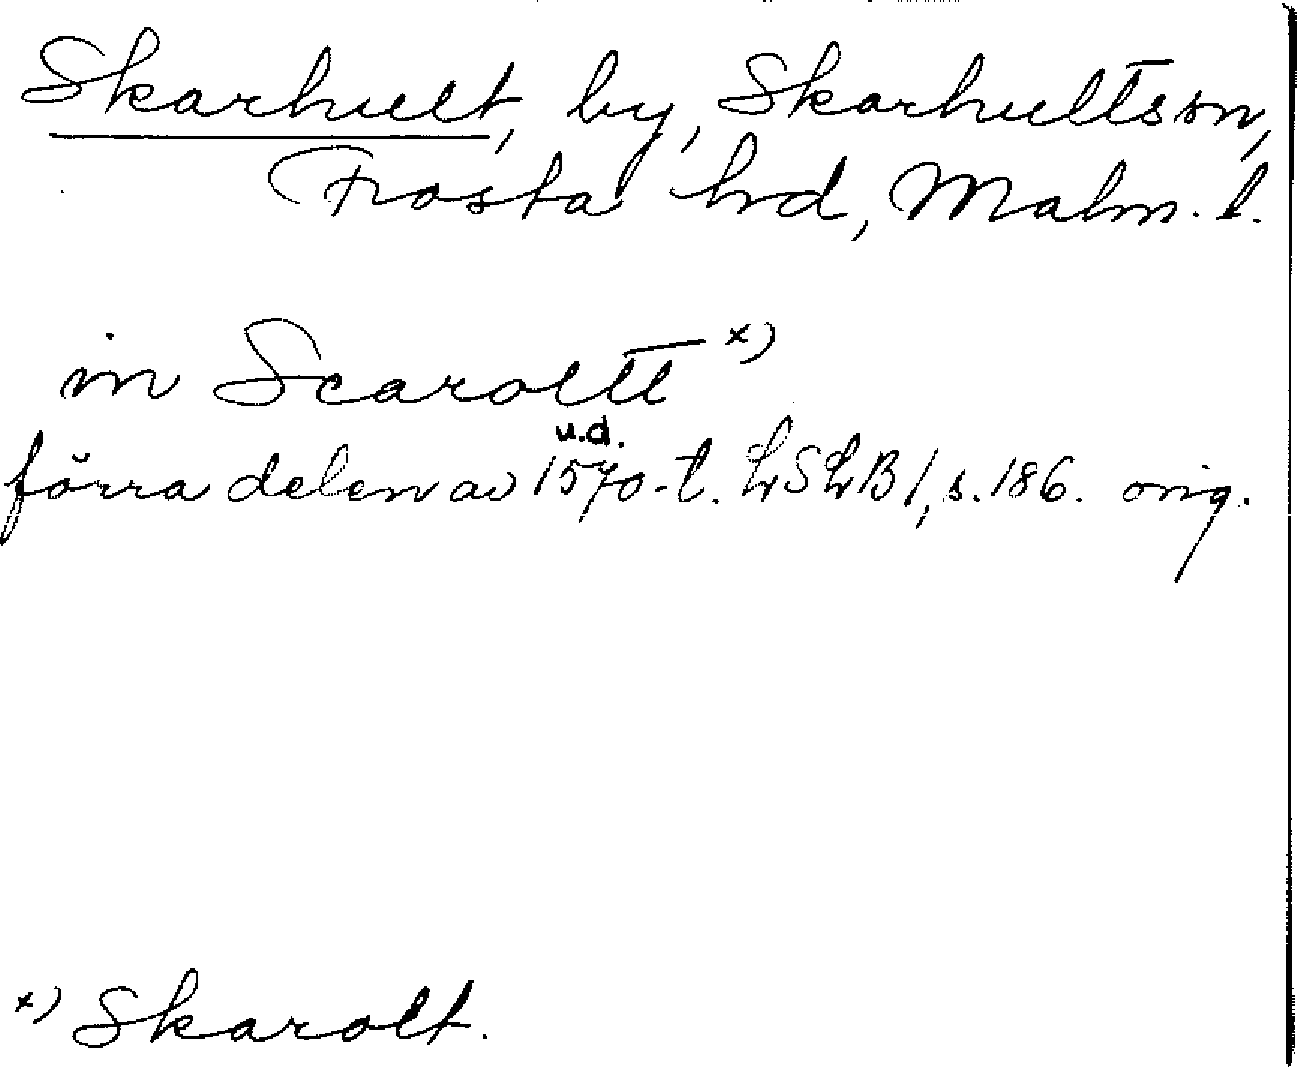 Skarhult, by, Skarhults sn,
Frosta hrd, Malm. l.
in Scaroltt x)
u.d.
förra delen av 1570-t. LSLB 1, s. 186. orig.
x) Skarolt.